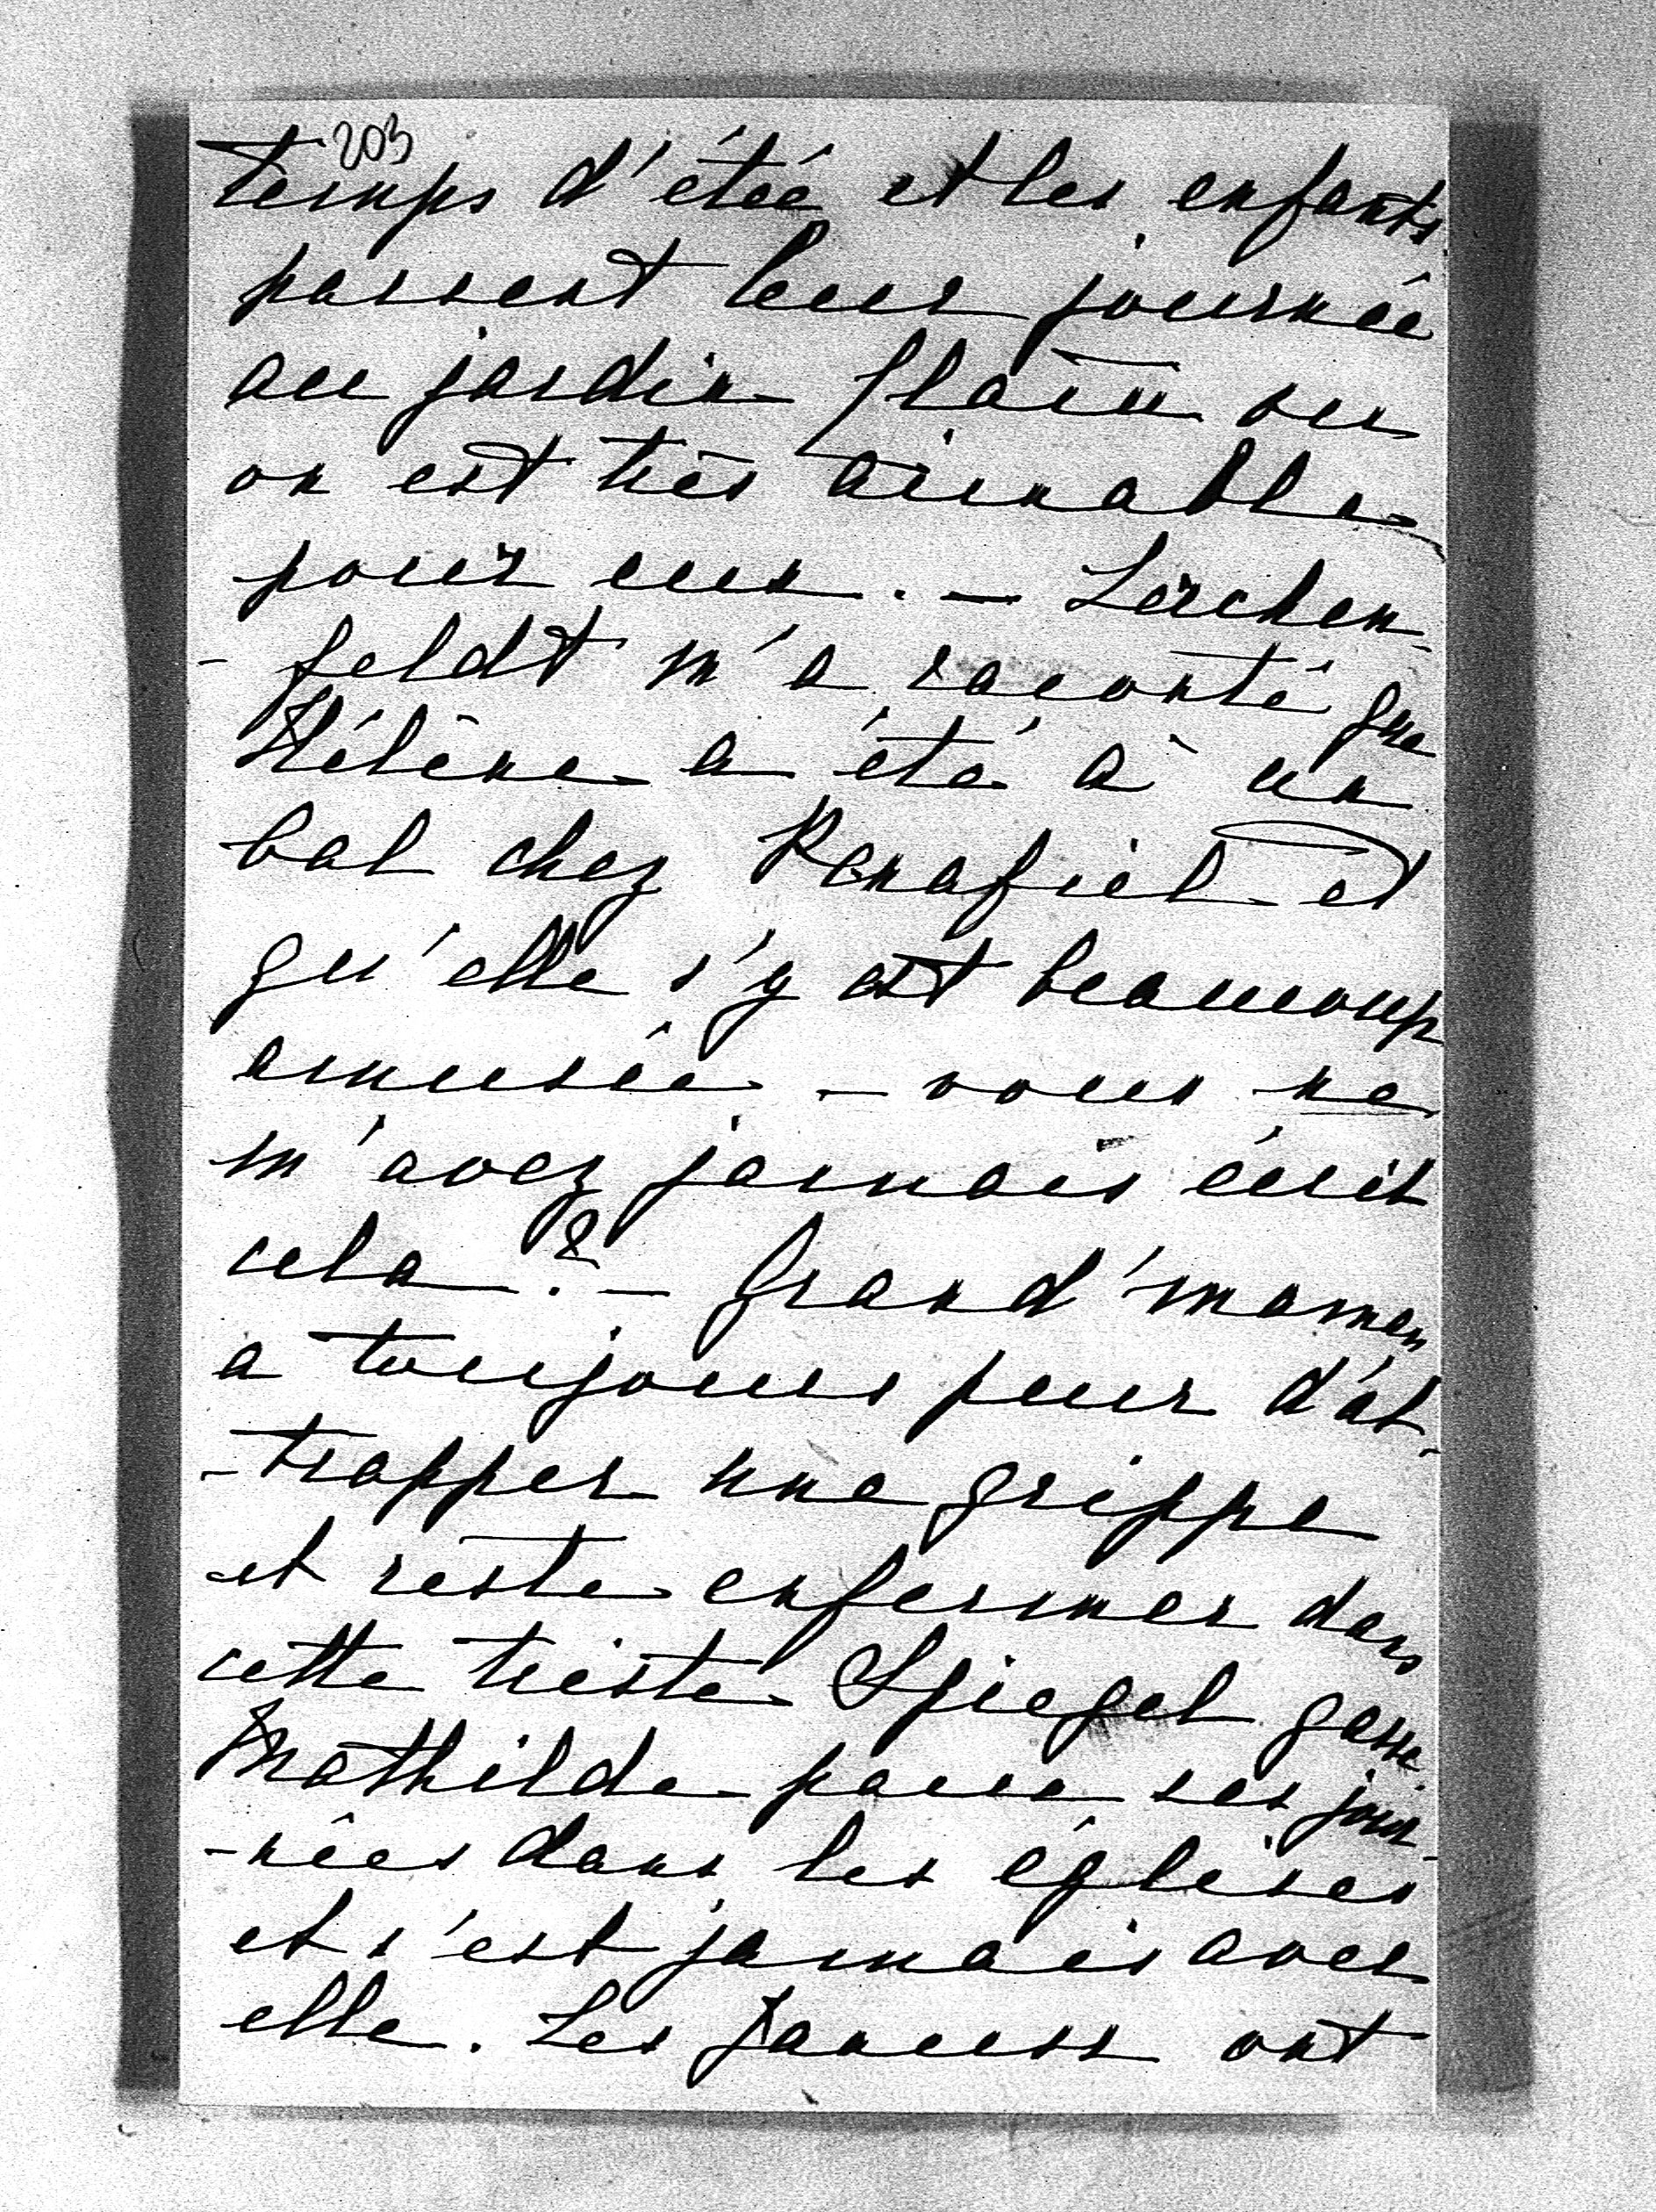 203
temps d'étée et les enfants
passent leur journée
au jardin
on est très aimable
pour eux. — Lerchen-
-feldt m'a raconté que
Hélène a été à un
bal chez Penafiel et
qu'elle s'y est beaucoup
amusée — vous ne
m'avez jamais écrit
cela? — Grand'maman
a toujours peur d'at-
-trapper une grippe
et reste enfermer dans
cette triste Spiegel gasse.
Mathilde passe ses jour-
-nées dans les églises
et n'est jamais avec
elle. Les ont